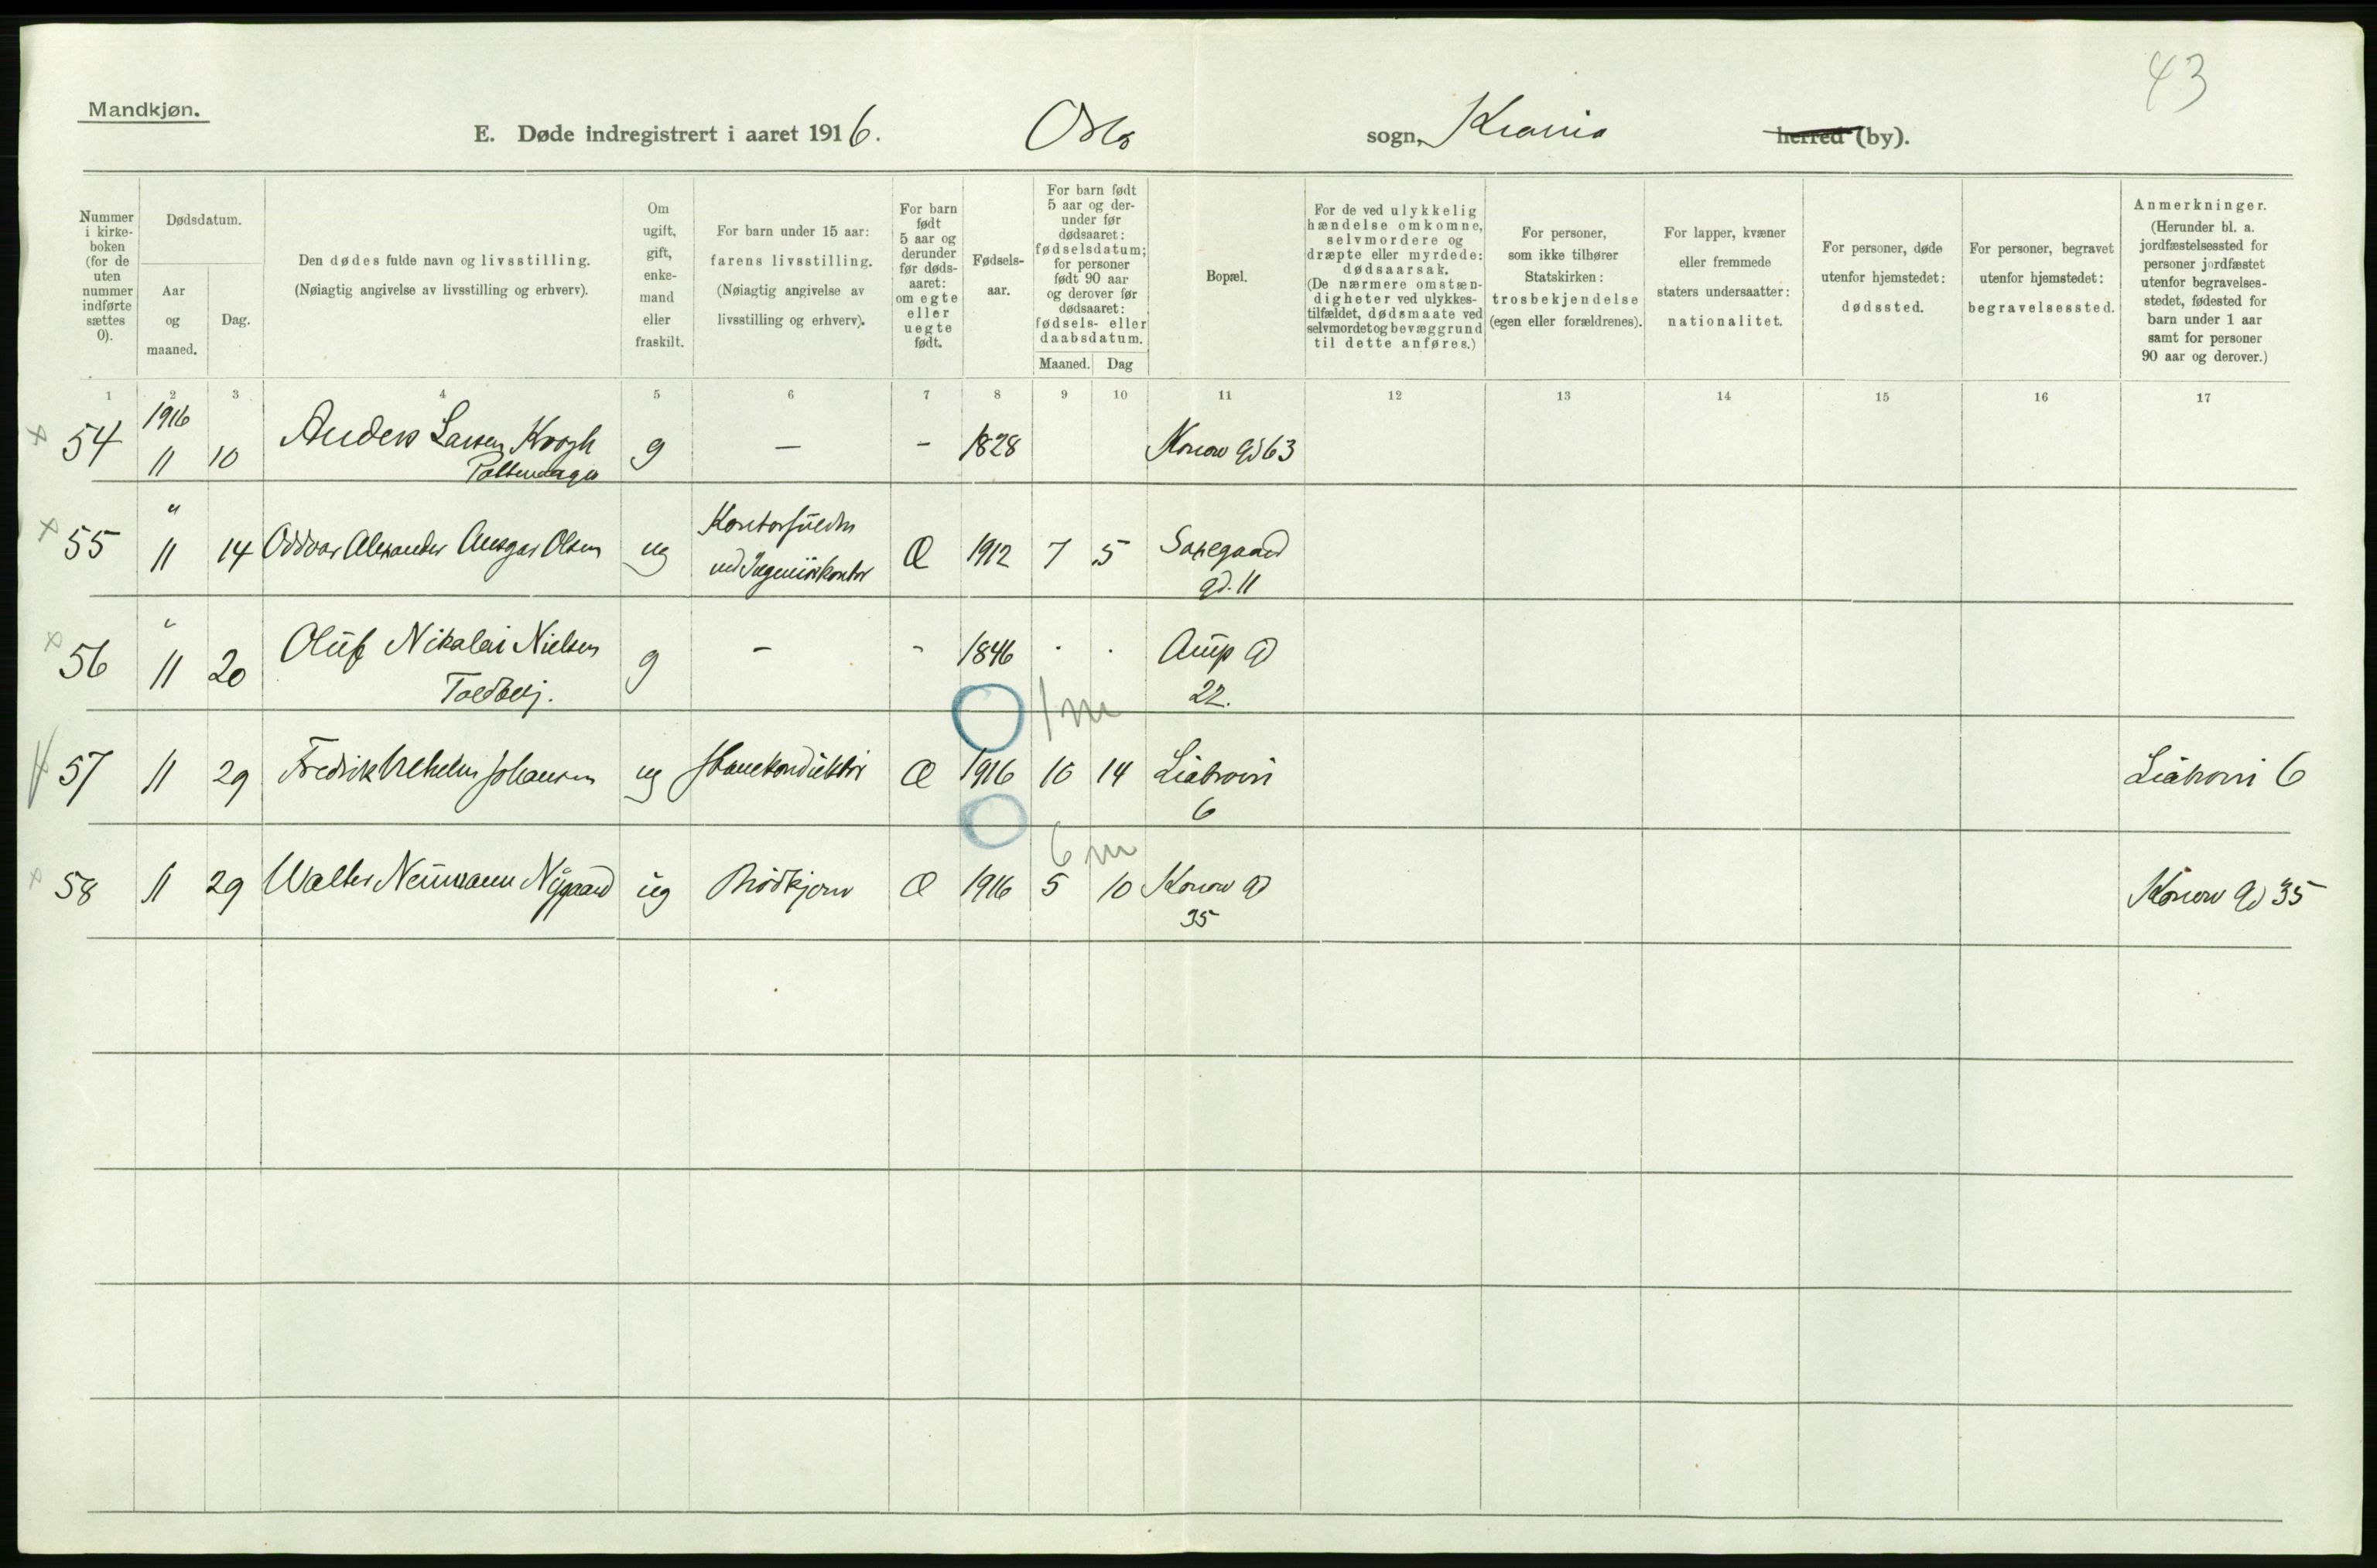 43
Mandkjøn.
E. Døde indregistrert i aaret 1916. Oslo sogn, Krania herred (by).
Nummer i kirke-boken (for de uten nummer indførte sættes 0).
Dødsdatum.
Aar og maaned.
Dag.
Den dødes fulde navn og livsstilling.
(Nøiagtig angivelse av livsstilling og erhverv).
Om ugift, gift, enke-mand eller fraskilt.
For barn under 15 aar: farens livsstilling.
(Nøiagtig angivelse av livsstilling og erhverv).
For barn født 5 aar og derunder før døds-aaret: om egte eller uegte født.
Fødsels-aar.
For barn født 5 aar og der-under før dødsaaret: fødselsdatum; for personer født 90 aar og derover før dødsaaret: fødsels- eller daabsdatum.
Maaned. Dag
Bopæl.
For de ved ulykkelig hændelse omkomne, selvmordere og dræpte eller myrdede: dødsaarsak.
(De nærmere omstæn-digheter ved ulykkes-tilfældet, dødsmaate ved selvmordet og bevæggrund til dette anføres.)
For personer, som ikke tilhører Statskirken: trosbekjendelse (egen eller forældrenes).
For lapper, kvæner eller fremmede staters undersaatter: nationalitet.
For personer, døde utenfor hjemstedet: dødssted.
For personer, begravet utenfor hjemstedet: begravelsessted.
Anmerkninger.
(Herunder bl. a. jordfæstelsessted for personer jordfæstet utenfor begravelses-stedet, fødested for barn under 1 aar samt for personer 90 aar og derover.)
1 2 3 4 5 6 7 8 9 10 11 12 13 14 15 16 17
1916
x 54 11 10 Anders Larsen Krogh g — - 1828 Konow gd 63
"
x 55 11 14 Oddvar Alexander Ansgar Olsen ug Kontorfuldm ved Ingeniørkontor Æ 1912 7 5 Saxegaard
gd. 11
"
x 56 11 20 Oluf Nikolai Nielsen g - - 1846 . . Aûp G
Toldbetj. 22.
1 m
57 11 29 Fredrik Wilhelm Johansen ug Skuekonduktör Æ 1916 10 14 Liabrovei Liabrovei 6
6
6 m
x 58 11 29 Walter Neumann Nygaard ug Brödkjörer Æ 1916 5 10 Konow G Konow Gd 35
35